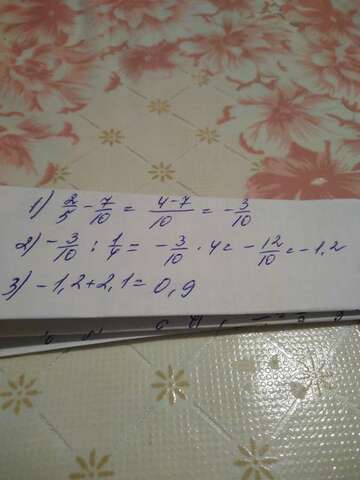 1) 2/5 - 7/10 = 4-7/10 = -3/10
2) -3/10 : 1/4 = -3/10 · 4 = -12/10 = -1,2
3) -1,2+2,1=0,9